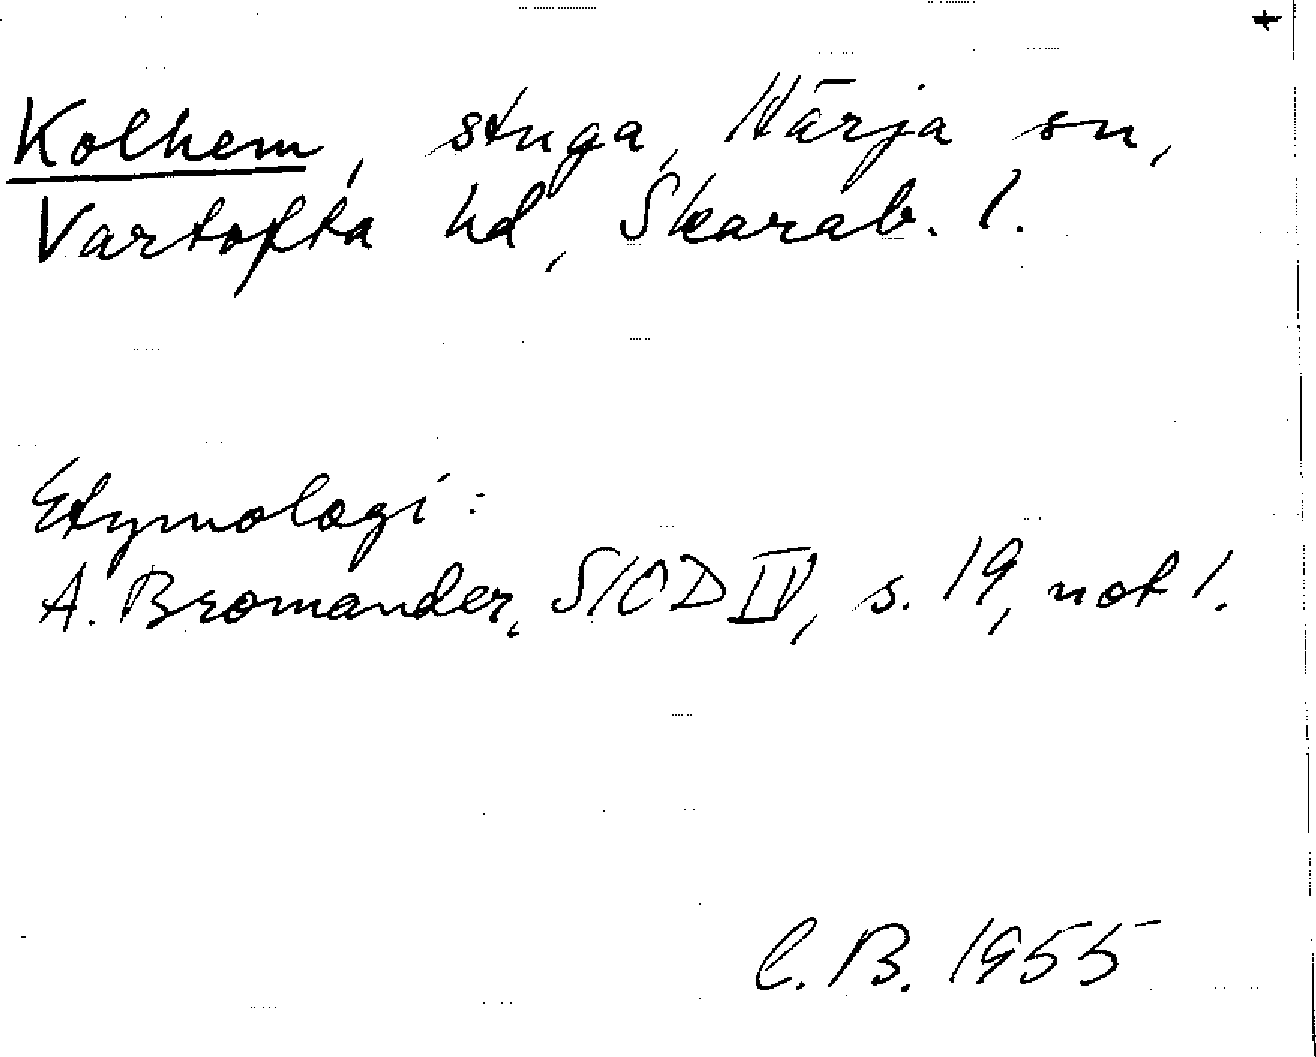 +
Kolhem, stuga, Härja sn,
Vartofta hd, Skarab. l.
Etymologi:
A. Bromander, SIOD IV, s. 19, not 1.
C. B. 1955